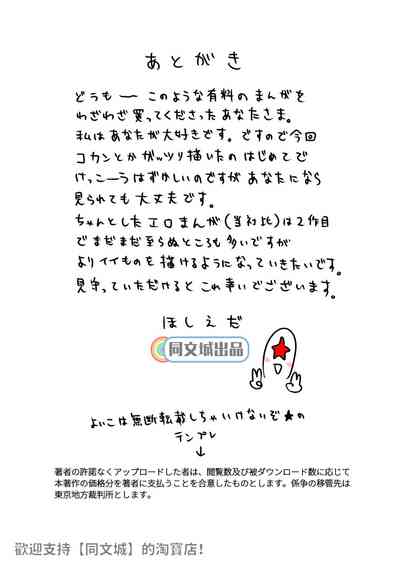 あとがき
どうも〜 このような有料のまんがを
わざわざ買ってくださったあなたさま。
私はあなたが大好きです。ですので今回
コカンとかガッツリ描いたのはじめてで
けっこーうはずかしいのですがあなたになら
見られても大丈夫です。
ちゃんとしたエロまんが(当社比)は2作目
でまだまだ至らぬところも多いですが
よりイイものを描けるようになっていきたいです。
見守っていただけるとこれ幸いでございます。
ほしえだ
同文城出品
よいこは無断転載しちゃいけないぞ★の
テンプレ
↓
著者の許諾なくアップロードした者は、閲覧数及び被ダウンロード数に応じて
本著作の価格分を著者に支払うことを合意したものとします。係争の移管先は
東京地方裁判所とします。
歡迎支持【同文城】的淘寶店!